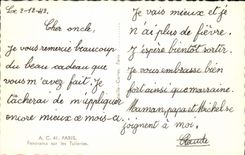 Le 2-12-42.
Cher oncle,
Je vous remercie beaucoup
du beau cadeau que
vous m'avez fait. Je
tâcherai de m'appliquer
encore mieux ce mois-ci.
A. C. 41. PARIS.
Panorama sur les Tuileries.
Je vais mieux et je
n'ai plus de fièvre.
J'espère bientôt sortir.
Je vous embrasse bien
fort ainsi que marraine.
Maman, papa et Michel se
joignent à moi.
Claude